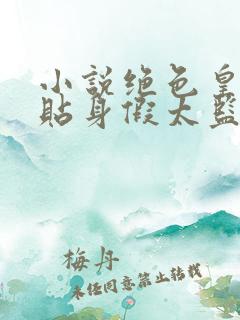 小说绝色皇
贴身假太监
梅丹
未经同意禁止转载